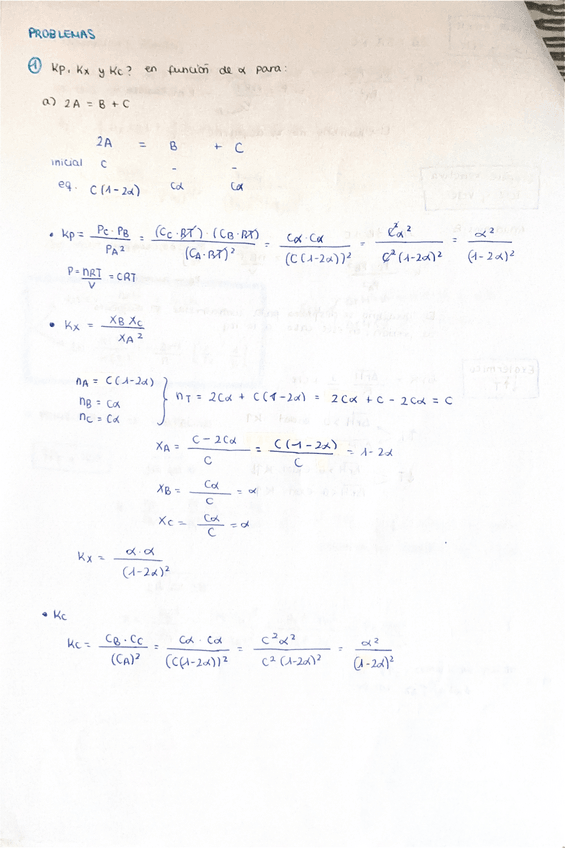 PROBLEMAS
① Kp, Kx y Kc? en función de α para:
a) 2A = B + C
2A = B + C
inicial C - -
eq. C(1-2α) Cα Cα
• Kp = Pc·PB / PA² = (Cc·RT)·(CB·RT) / (CA·RT)² = Cα·Cα / (C(1-2α))² = C²α² / C²(1-2α)² = α² / (1-2α)²
P = nRT / V = CRT
• Kx = XB XC / XA²
nA = C(1-2α)
nB = Cα
nC = Cα
} nT = 2Cα + C(1-2α) = 2Cα + C - 2Cα = C
XA = C - 2Cα / C = C(1-2α) / C = 1-2α
XB = Cα / C = α
XC = Cα / C = α
Kx = α·α / (1-2α)²
• Kc
Kc = CB·CC / (CA)² = Cα·Cα / (C(1-2α))² = C²α² / C²(1-2α)² = α² / (1-2α)²